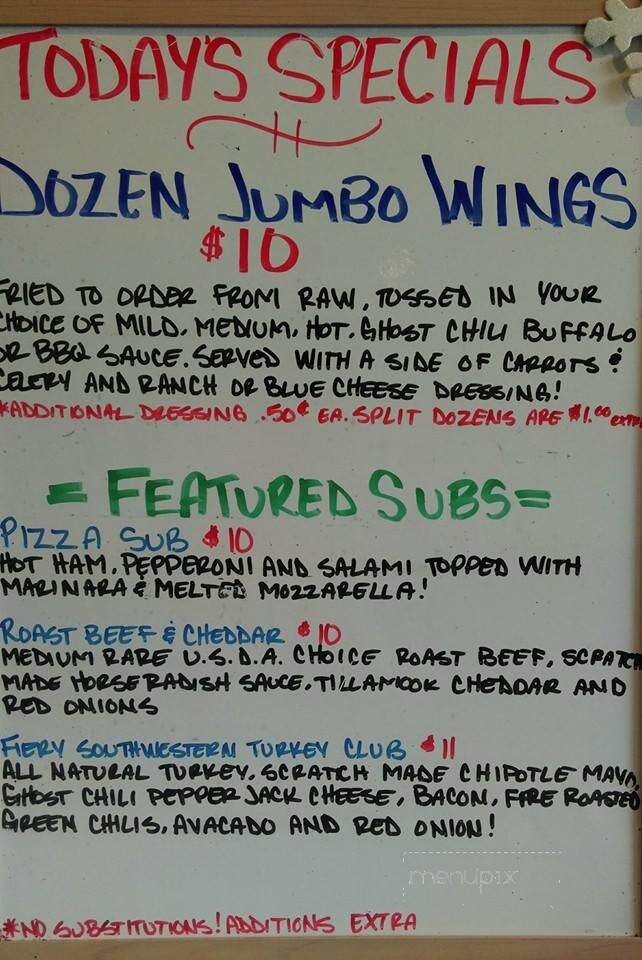 TODAY'S SPECIALS
DOZEN JUMBO WINGS
$10
FRIED TO ORDER FROM RAW, TOSSED IN YOUR
CHOICE OF MILD, MEDIUM, HOT, GHOST CHILI BUFFALO
OR BBQ SAUCE. SERVED WITH A SIDE OF CARROTS &
CELERY AND RANCH OR BLUE CHEESE DRESSING!
*ADDITIONAL DRESSING .50¢ EA. SPLIT DOZENS ARE $1.00 EXTRA
= FEATURED SUBS =
PIZZA SUB $10
HOT HAM, PEPPERONI AND SALAMI TOPPED WITH
MARINARA & MELTED MOZZARELLA!
ROAST BEEF & CHEDDAR $10
MEDIUM RARE U.S.D.A. CHOICE ROAST BEEF, SCRATCH
MADE HORSERADISH SAUCE, TILLAMOOK CHEDDAR AND
RED ONIONS
FIERY SOUTHWESTERN TURKEY CLUB $11
ALL NATURAL TURKEY, SCRATCH MADE CHIPOTLE MAYO,
GHOST CHILI PEPPER JACK CHEESE, BACON, FIRE ROASTED
GREEN CHILIS, AVACADO AND RED ONION!
menupix
*NO SUBSTITUTIONS! ADDITIONS EXTRA